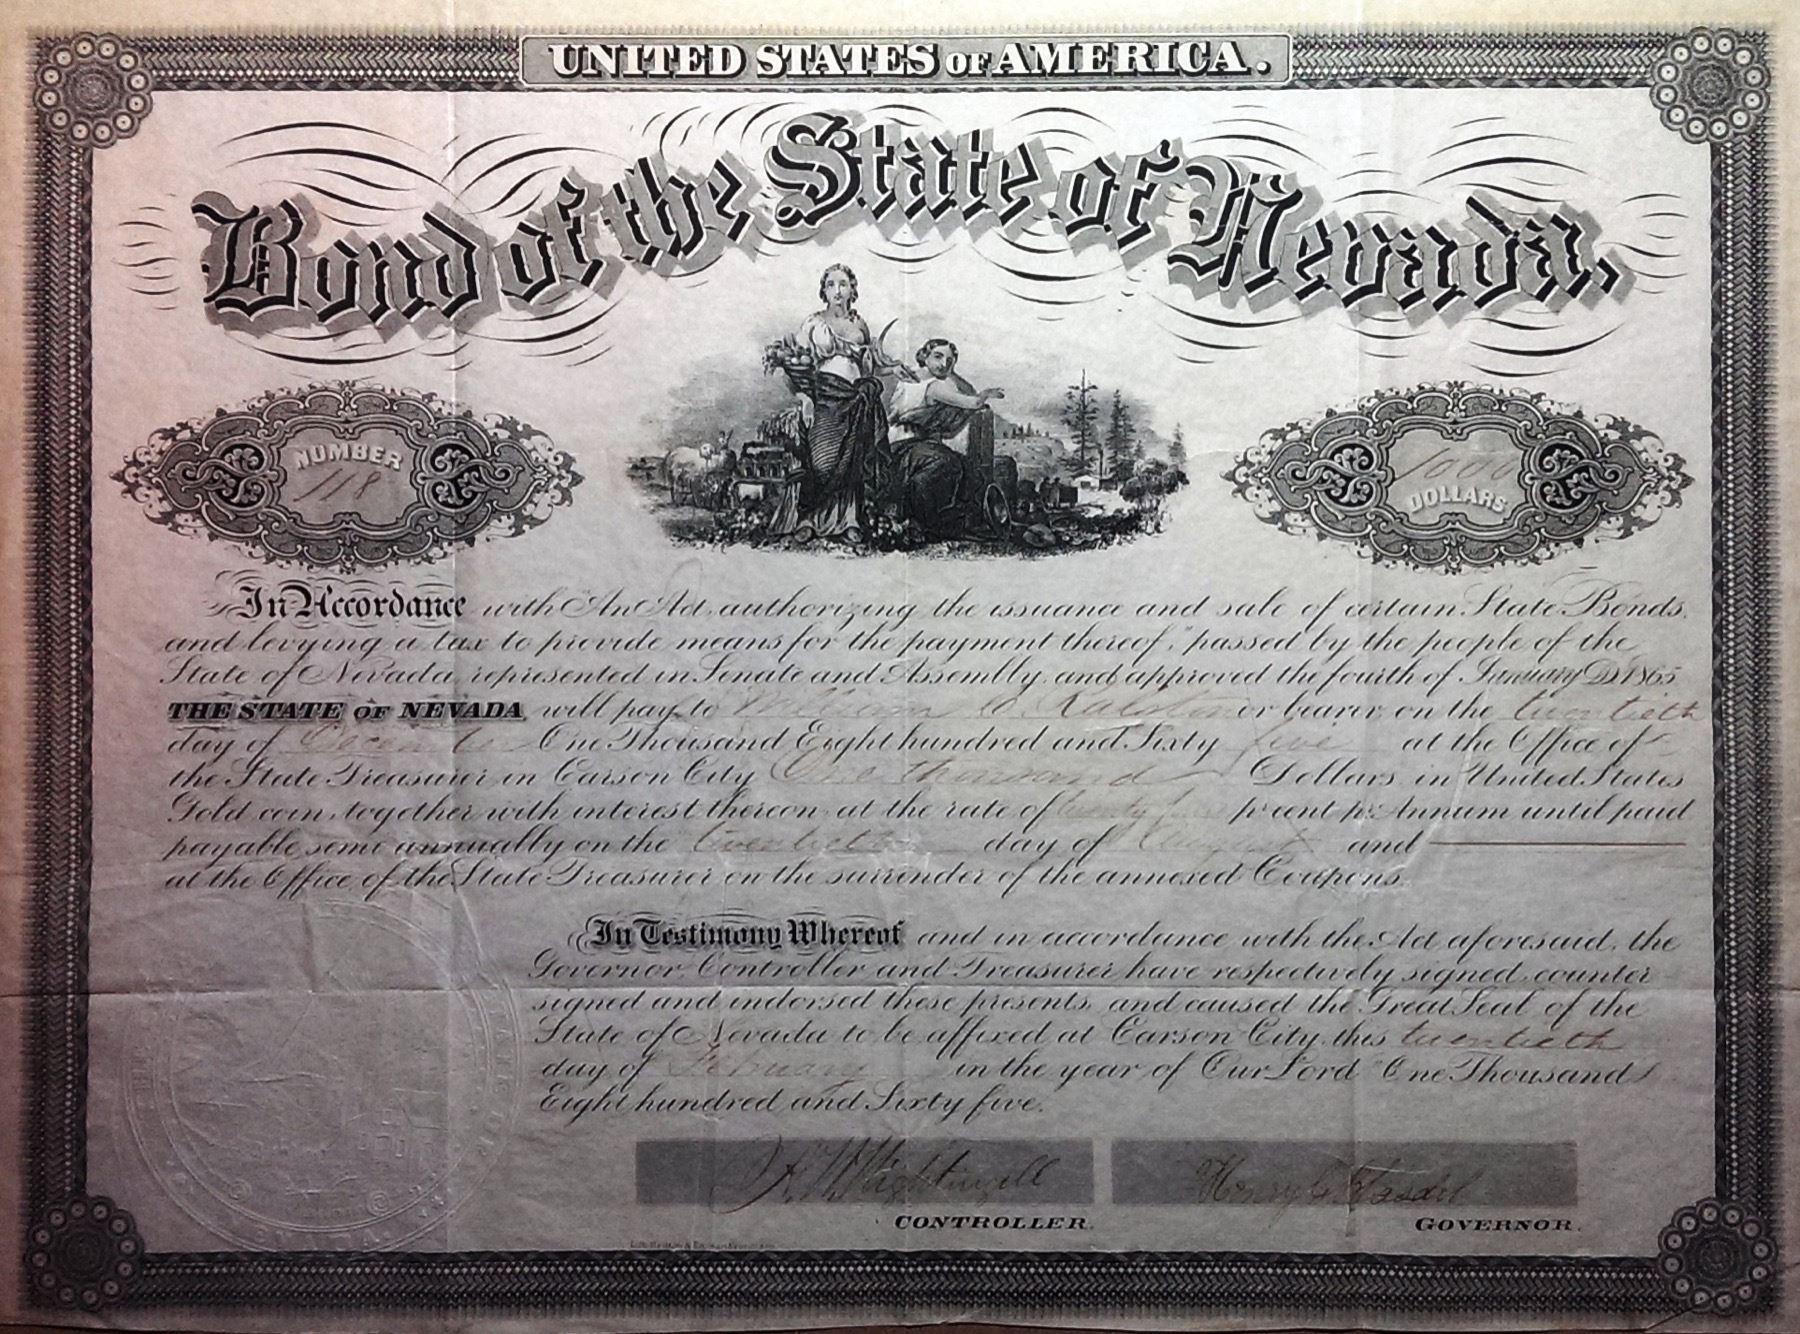 UNITED STATES OF AMERICA.
Bond of the State of Nevada,
NUMBER
118
1000
DOLLARS
In Accordance with "An Act authorizing the issuance and sale of certain State Bonds,
and levying a tax to provide means for the payment thereof," passed by the people of the
State of Nevada, represented in Senate and Assembly and approved the fourth of January AD 1865
THE STATE OF NEVADA will pay to William C. Ralston or bearer, on the twentieth
day of December One Thousand Eight hundred and Sixty five at the Office of
the State Treasurer in Carson City One thousand Dollars in United States
Gold coin, together with interest thereon at the rate of pr cent pr Annum until paid
payable semi annually on the twentieth day of August and
at the Office of the State Treasurer on the surrender of the annexed Coupons.
In Testimony Whereof and in accordance with the Act aforesaid, the
Governor, Controller and Treasurer have respectively signed, counter
signed and indorsed these presents, and caused the Great Seal of the
State of Nevada to be affixed at Carson City, this twentieth
day of February in the year of Our Lord One Thousand
Eight hundred and Sixty five.
A W Nightingill
Henry G Blasdel
CONTROLLER.
GOVERNOR.